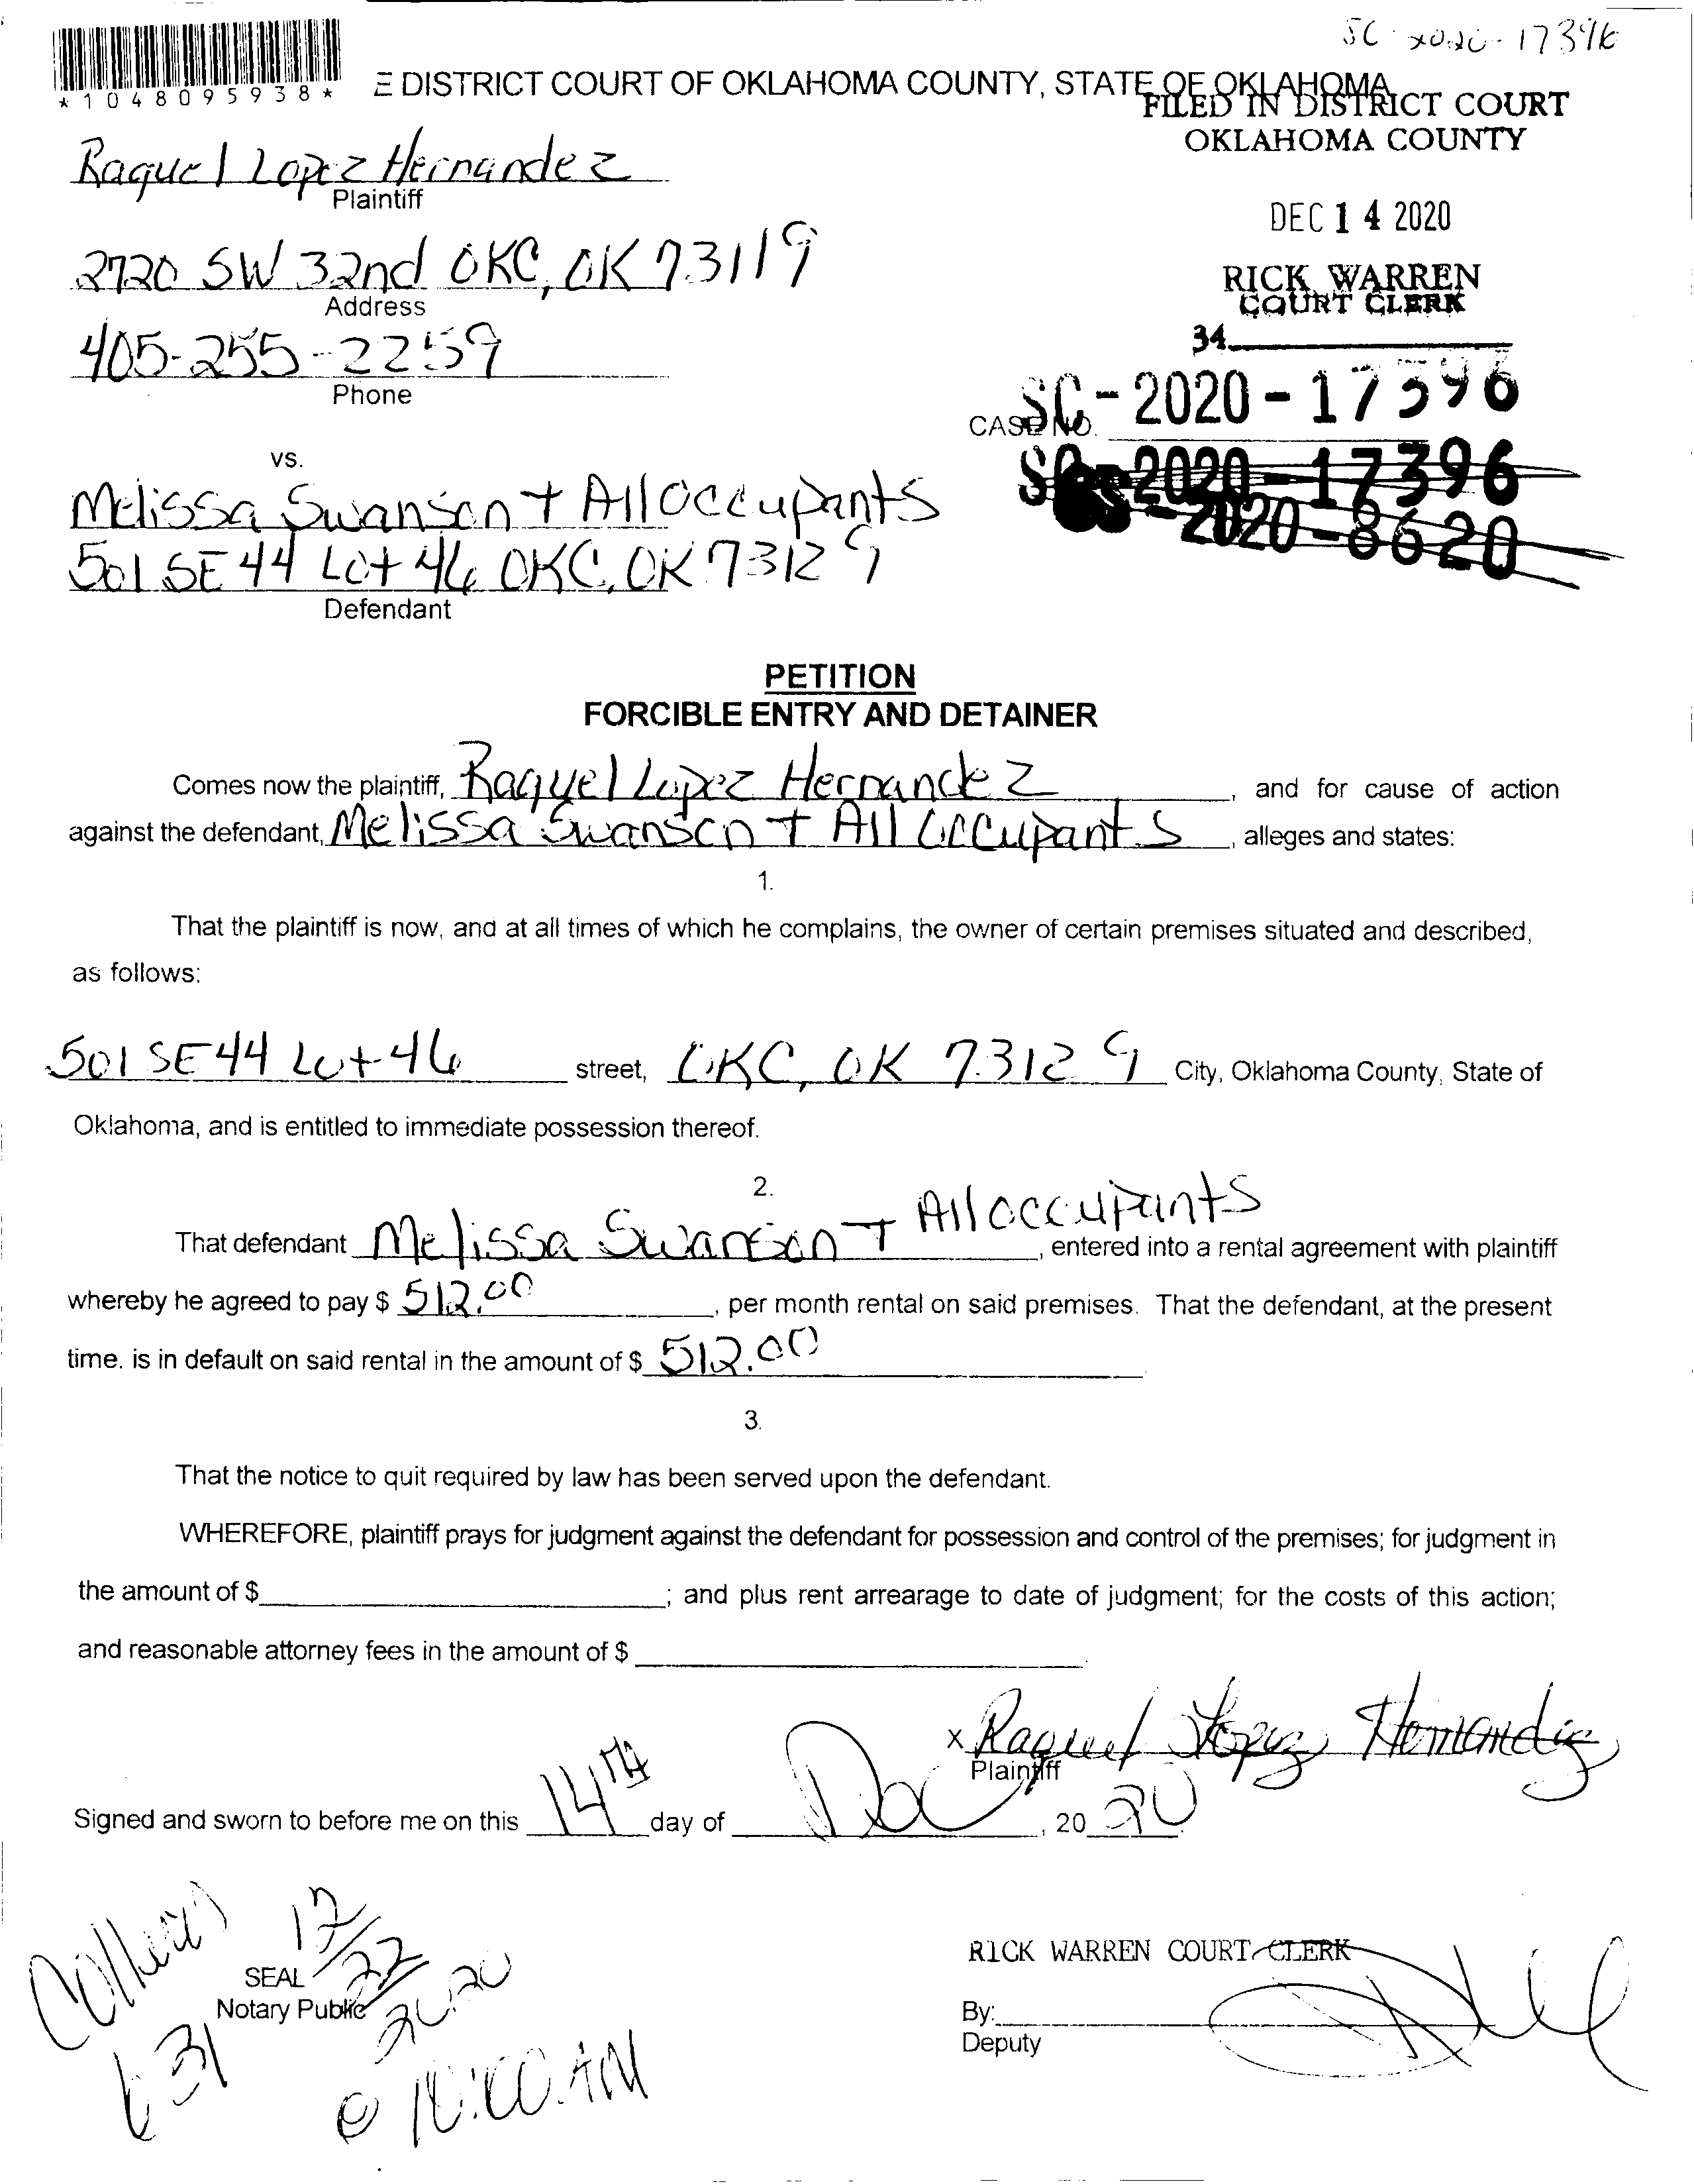 SC-2020-17396
*1048095938*
E DISTRICT COURT OF OKLAHOMA COUNTY, STATE OF OKLAHOMA
FILED IN DISTRICT COURT
OKLAHOMA COUNTY
Raquel Lopez Hernandez
Plaintiff
DEC 14 2020
2720 SW 32nd OKC, OK 73119
Address
RICK WARREN
COURT CLERK
34
405-255-2259
Phone
SC-2020-17396
CASE NO.
vs.
SC-2020-17396
Melissa Swanson + All Occupants
-2020-8620
501 SE 44 Lot 46 OKC, OK 73129
Defendant
PETITION
FORCIBLE ENTRY AND DETAINER
Comes now the plaintiff, Raquel Lopez Hernandez, and for cause of action
against the defendant, Melissa Swanson + All Occupants, alleges and states:
1.
That the plaintiff is now, and at all times of which he complains, the owner of certain premises situated and described,
as follows:
501 SE 44 Lot 46 street, OKC, OK 73129 City, Oklahoma County, State of
Oklahoma, and is entitled to immediate possession thereof.
2.
That defendant Melissa Swanson + All Occupants, entered into a rental agreement with plaintiff
whereby he agreed to pay $ 512.00, per month rental on said premises. That the defendant, at the present
time, is in default on said rental in the amount of $ 512.00
3.
That the notice to quit required by law has been served upon the defendant.
WHEREFORE, plaintiff prays for judgment against the defendant for possession and control of the premises; for judgment in
the amount of $ ; and plus rent arrearage to date of judgment; for the costs of this action;
and reasonable attorney fees in the amount of $
x Raquel Lopez Hernandez
Plaintiff
Signed and sworn to before me on this 14TH day of Dec, 2020
12/22
2020
631
@ 10:00 AM
SEAL
Notary Public
RICK WARREN COURT CLERK
By:
Deputy